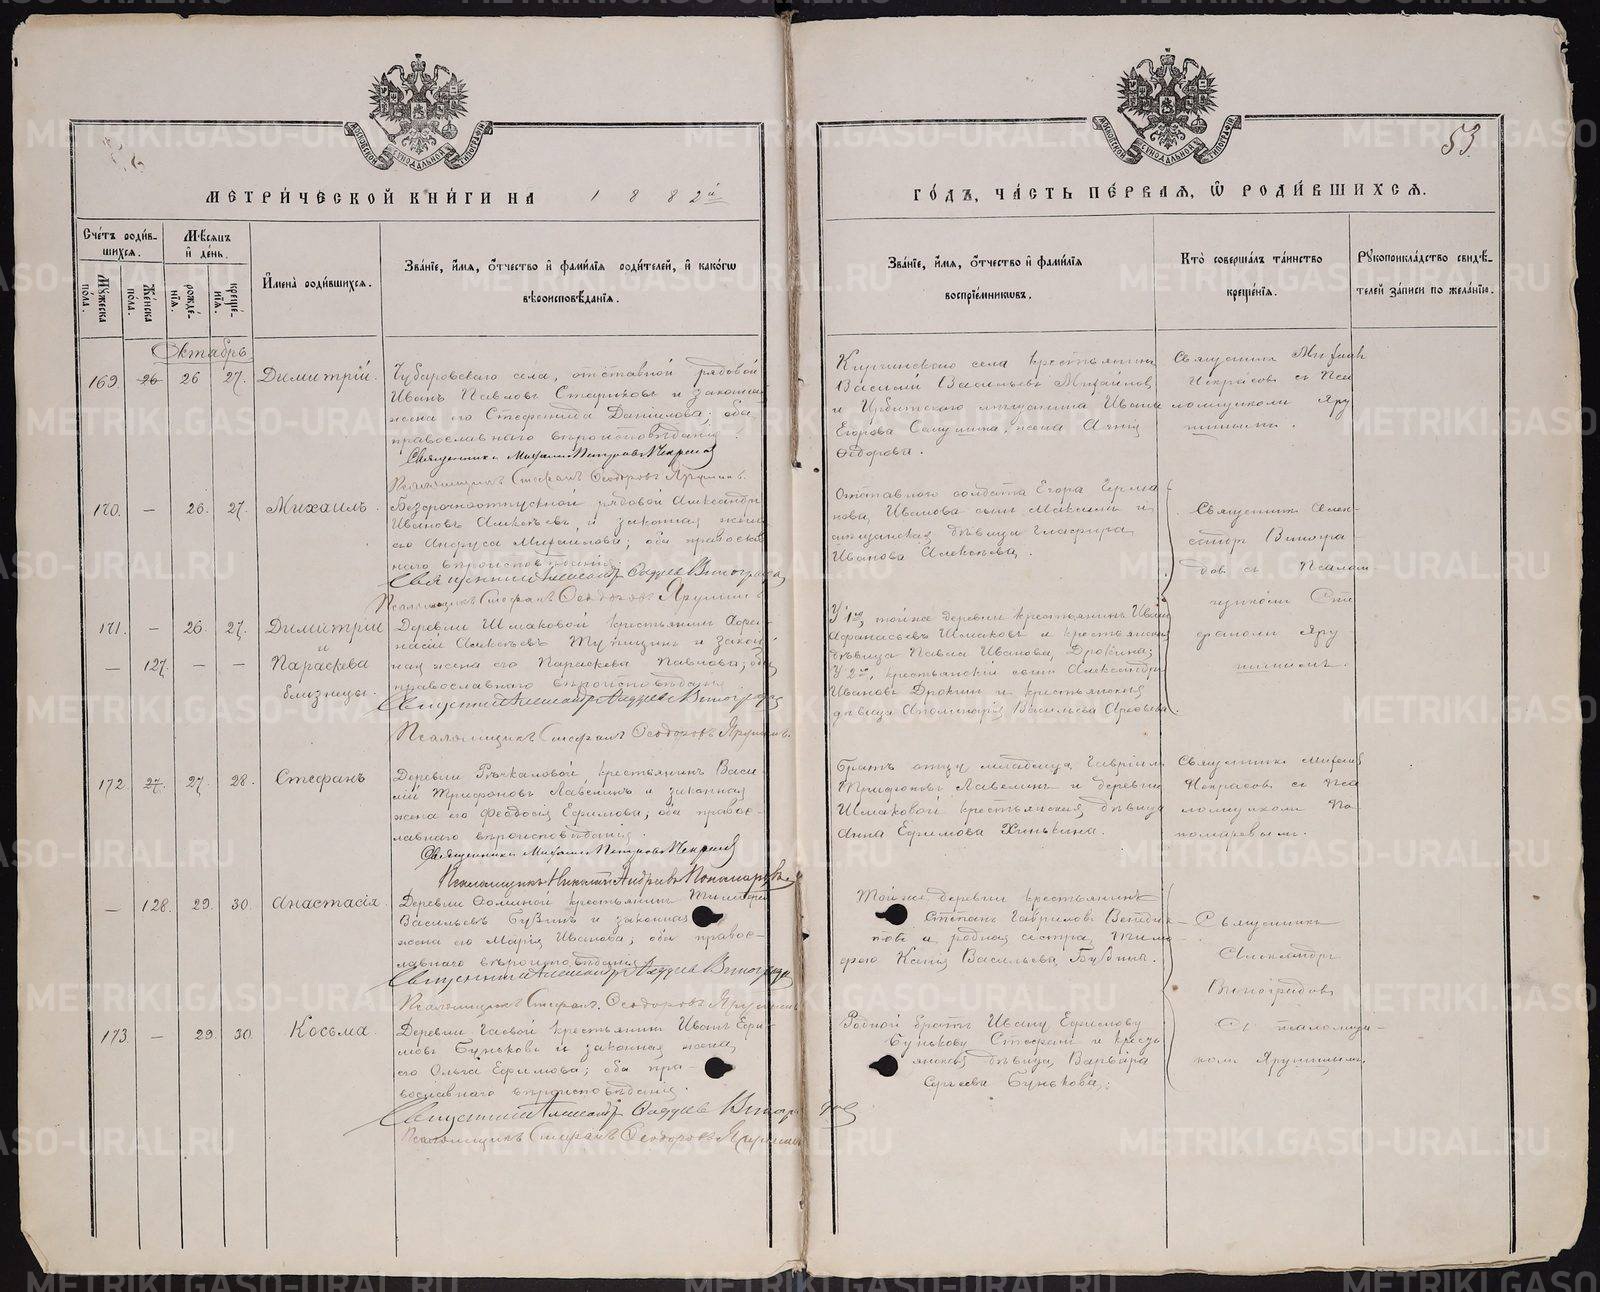 53
МЕТРИ́ЧЕСКОЙ КНИ́ГИ НА 1882й
ГО́ДЪ, ЧА́СТЬ ПЕ́РВАЯ, Ѽ РОДИ́ВШИХСЯ.
Сче́тъ роди́вшихся.
Мѣ́сяцъ и҆ де́нь.
И҆мена̀ роди́вшихся.
Зва́нїе, и҆́мя, ѻ҆́тчество и҆ фами́лїя роди́телей, и҆ како́гѡ вѣроисповѣ́данїя.
Зва́нїе, и҆́мя, ѻ҆́тчество и҆ фами́лїя воспрїе́мникѡвъ.
Кто̀ соверша́лъ та́инство креще́нїя.
Рꙋкоприкла́дство свидѣ́телей за́писи по жела́нїю.
Мꙋ́жеска по́ла.
Же́нска по́ла.
рожде́нїя.
креще́нїя.
Октябрь
169. 26 26 27. Димитрій.
Чубаровскаго села, отставной рядовой
Иванъ Павловъ Стариковъ и законная
жена его Стефанида Данилова; оба
православнаго вѣроисповѣданія.
Священникъ Михаилъ Петровъ Некрасовъ
Псаломщикъ Стефанъ Ѳеодоровъ Ярушинъ.
Киргинскаго села крестьянинъ
Василій Васильевъ Михайловъ
и Ирбитскаго мѣщанина Ивана
Егорова жена Анна
Ѳедорова.
Священникъ Михаилъ
Некрасовъ съ Пса
ломщикомъ Яру
шинымъ.
170. – 26. 27. Михаилъ.
Безсрочноотпускной рядовой Александръ
Ивановъ Алексѣевъ, и законная жена
его Михайлова; оба православ
наго вѣроисповѣданія.
Священникъ Александръ Виноградовъ
Псаломщикъ Стефанъ Ѳеодоровъ Ярушинъ
Отставного солдата Егора Герма
нова, Иванова сынъ Максимъ и
дѣвица Глафира
Иванова Алексѣева.
Священникъ Алек-
сандръ Виногра-
довъ съ Псалом
щикомъ Сте
фаномъ Яру
шинымъ.
171. – 26. 27. Димитрій
и
– 127. – – Параскева
близнецы.
Деревни Шмаковой крестьянинъ
Алексѣевъ и закон
ная жена его Параскева Павлова; оба
православнаго вѣроисповѣданія
Священникъ Александръ Виноградовъ
Псаломщикъ Стефанъ Ѳеодоровъ Ярушинъ.
У 1го, той же деревни крестьянинъ Иванъ
Афанасьевъ Шмаковъ и крестьянская
дѣвица Иванова, Дрокина;
У 2й, крестьянскій сынъ Александръ
Ивановъ Дрокинъ и крестьянская
дѣвица Васильева
172. 27. 27. 28. Стефанъ
Деревни Рѣчкаловой, крестьянинъ Васи-
лій Трифоновъ Лавелинъ и законная
жена его Ѳеодосія Ефимова; оба правос-
лавнаго вѣроисповѣданія.
Священникъ Михаилъ Петровъ Некрасовъ
Псаломщикъ Николай Андреевъ Пономаревъ
Братъ отцу младенца, Гавріилъ
Трифоновъ Лавелинъ и деревни
Шмаковой крестьянская дѣвица
Анна Ефимова Хинькина.
Священникъ Михаилъ
Некрасовъ съ Пса
ломщикомъ По
номаревымъ.
– 128. 29. 30. Анастасія.
Деревни Ѳоминой крестьянинъ
Васильевъ и законная
жена его Марія Иванова; оба правос-
лавнаго вѣроисповѣданія.
Священникъ Александръ Виноградовъ
Псаломщикъ Стефанъ Ѳеодоровъ Ярушинъ
Той же деревни крестьянинъ
Степанъ Гавриловъ
и родная сестра
Васильева
Священникъ
Александръ
Виноградовъ
съ псаломщи-
комъ Ярушинымъ.
173. – 29. 30. Косьма.
Деревни Гаевой крестьянинъ Иванъ Ефи-
мовъ Буньковъ и законная жена
его Ольга Ефимова; оба пра-
вославнаго вѣроисповѣданія.
Священникъ Александръ Виноградовъ
Псаломщикъ Стефанъ Ѳеодоровъ Ярушинъ
Родной братъ Ивану Ефимову
Бунькову Стефанъ и кресть
янская дѣвица Варвара
Сергеева Бунькова.
METRIKI.GASO-URAL.RU